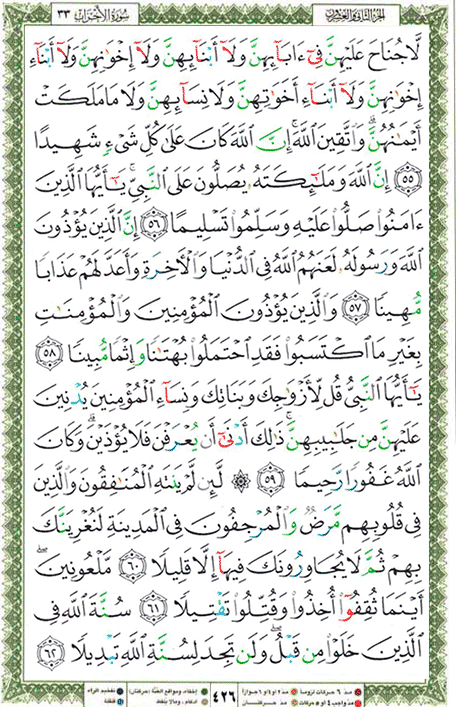 الجزء الثاني والعشرون
سُورَةُ الأَحْزَاب ٣٣
لَّا جُنَاحَ عَلَيْهِنَّ فِىٓ ءَابَآئِهِنَّ وَلَآ أَبْنَآئِهِنَّ وَلَآ إِخْوَٰنِهِنَّ وَلَآ أَبْنَآءِ
إِخْوَٰنِهِنَّ وَلَآ أَبْنَآءِ أَخَوَٰتِهِنَّ وَلَا نِسَآئِهِنَّ وَلَا مَا مَلَكَتْ
أَيْمَٰنُهُنَّ ۗ وَٱتَّقِينَ ٱللَّهَ ۚ إِنَّ ٱللَّهَ كَانَ عَلَىٰ كُلِّ شَىْءٍ شَهِيدًا
٥٥ إِنَّ ٱللَّهَ وَمَلَٰٓئِكَتَهُۥ يُصَلُّونَ عَلَى ٱلنَّبِىِّ ۚ يَٰٓأَيُّهَا ٱلَّذِينَ
ءَامَنُوا۟ صَلُّوا۟ عَلَيْهِ وَسَلِّمُوا۟ تَسْلِيمًا ٥٦ إِنَّ ٱلَّذِينَ يُؤْذُونَ
ٱللَّهَ وَرَسُولَهُۥ لَعَنَهُمُ ٱللَّهُ فِى ٱلدُّنْيَا وَٱلْءَاخِرَةِ وَأَعَدَّ لَهُمْ عَذَابًا
مُّهِينًا ٥٧ وَٱلَّذِينَ يُؤْذُونَ ٱلْمُؤْمِنِينَ وَٱلْمُؤْمِنَٰتِ
بِغَيْرِ مَا ٱكْتَسَبُوا۟ فَقَدِ ٱحْتَمَلُوا۟ بُهْتَٰنًا وَإِثْمًا مُّبِينًا ٥٨
يَٰٓأَيُّهَا ٱلنَّبِىُّ قُل لِّأَزْوَٰجِكَ وَبَنَاتِكَ وَنِسَآءِ ٱلْمُؤْمِنِينَ يُدْنِينَ
عَلَيْهِنَّ مِن جَلَٰبِيبِهِنَّ ۚ ذَٰلِكَ أَدْنَىٰٓ أَن يُعْرَفْنَ فَلَا يُؤْذَيْنَ ۗ وَكَانَ
ٱللَّهُ غَفُورًا رَّحِيمًا ٥٩ ۞ لَّئِن لَّمْ يَنتَهِ ٱلْمُنَٰفِقُونَ وَٱلَّذِينَ
فِى قُلُوبِهِم مَّرَضٌ وَٱلْمُرْجِفُونَ فِى ٱلْمَدِينَةِ لَنُغْرِيَنَّكَ
بِهِمْ ثُمَّ لَا يُجَاوِرُونَكَ فِيهَآ إِلَّا قَلِيلًا ٦٠ مَّلْعُونِينَ ۖ
أَيْنَمَا ثُقِفُوٓا۟ أُخِذُوا۟ وَقُتِّلُوا۟ تَقْتِيلًا ٦١ سُنَّةَ ٱللَّهِ فِى
ٱلَّذِينَ خَلَوْا۟ مِن قَبْلُ ۖ وَلَن تَجِدَ لِسُنَّةِ ٱللَّهِ تَبْدِيلًا ٦٢
مدّ ٦ حركات لزوماً
مدّ ٢ أو ٤ أو ٦ جوازاً
مدّ واجب ٤ أو ٥ حركات
مدّ حركتان
٤٢٦
إخفاء، ومواقع الغُنَّة (حركتان)
إدغام، وما لا يُلفظ
تفخيم الراء
قلقلة